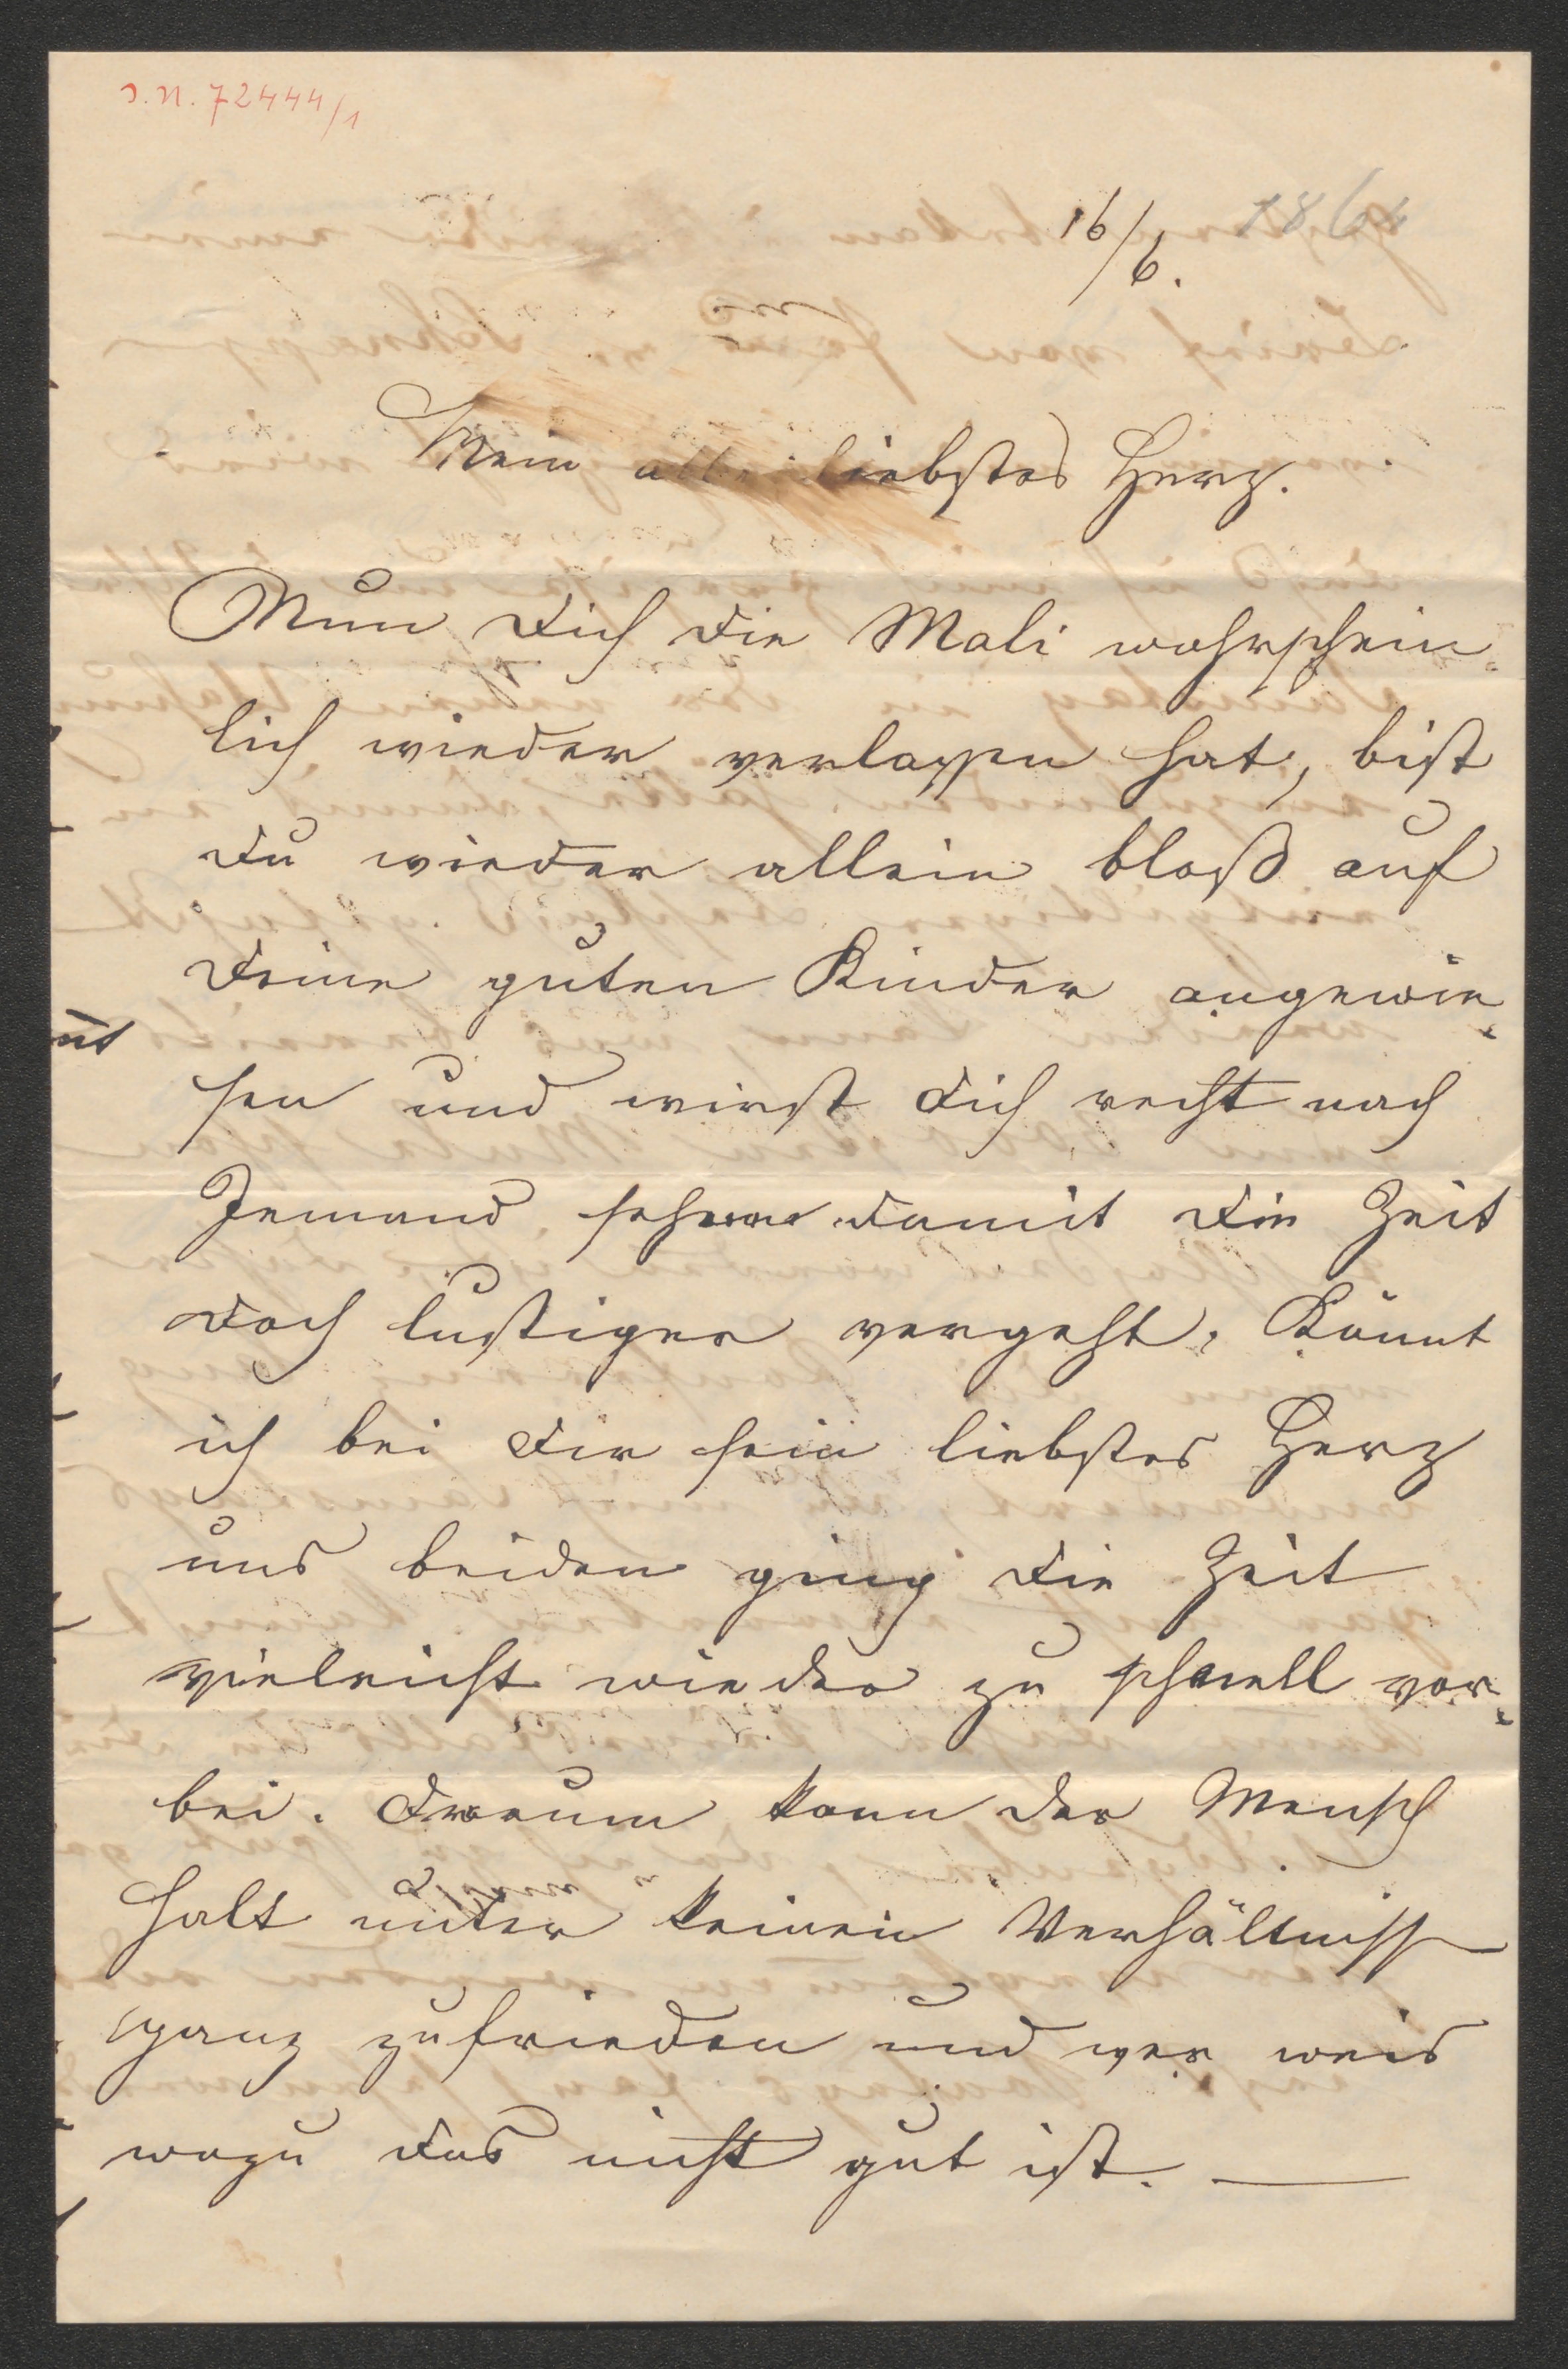 I.N. 72444/1
16/6. 1864
Mein allerliebstes Herz.
Nun Dich die Mali wahrschein-
lich wieder verlassen hat, bist
Du wieder allein bloß auf
Deine guten Kinder angewie-
sen und wirst Dich recht nach
Jemand sehnen damit die Zeit
doch lustiger vergeht. Könnt
ich bei Dir sein liebstes Herz
uns beiden ging die Zeit
vieleicht wieder zu schnell vor-
bei. Drum kann der Mensch
halt unter keinen Verhältniss
ganz zufrieden und wer weis
wozu das nicht gut ist. —